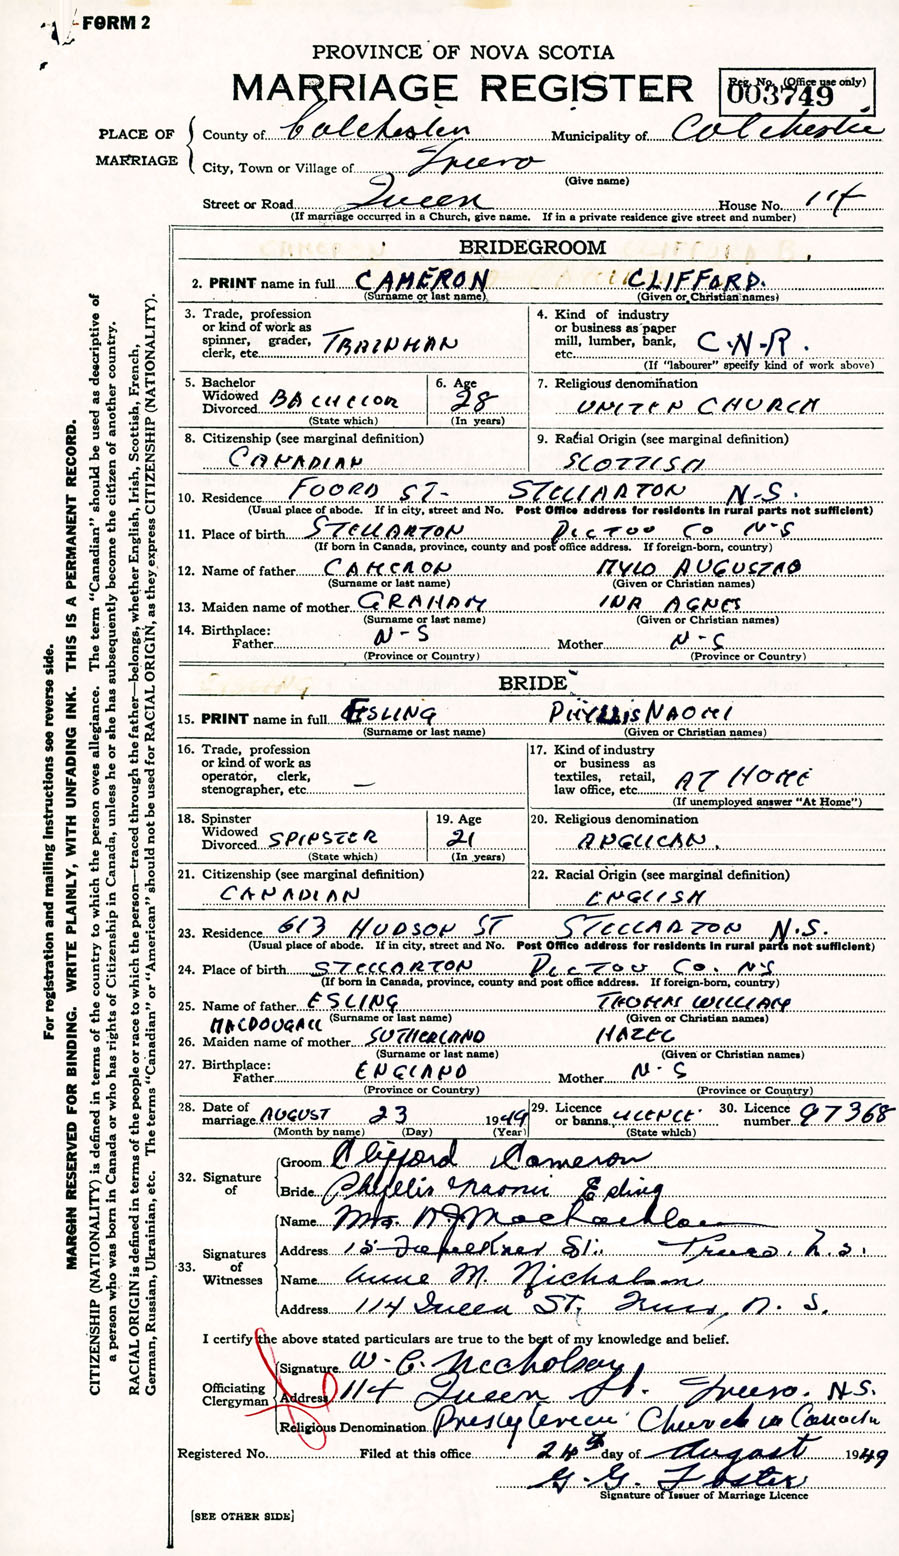 FORM 2
PROVINCE OF NOVA SCOTIA
MARRIAGE REGISTER
Reg. No. (Office use only)
003749
PLACE OF MARRIAGE
County of Colchester Municipality of Colchester
City, Town or Village of Truro
(Give name)
Street or Road Queen House No. 114
(If marriage occurred in a Church, give name. If in a private residence give street and number)
BRIDEGROOM
2. PRINT name in full CAMERON CLIFFORD.
(Surname or last name) (Given or Christian names)
3. Trade, profession or kind of work as spinner, grader, clerk, etc. TRAINMAN
4. Kind of industry or business as paper mill, lumber, bank, etc. C.N.R.
(If "labourer" specify kind of work above)
5. Bachelor Widowed Divorced BACHELOR
(State which)
6. Age 28
(In years)
7. Religious denomination
UNITED CHURCH
8. Citizenship (see marginal definition)
CANADIAN
9. Racial Origin (see marginal definition)
SCOTTISH
10. Residence FOORD ST- STELLARTON N-S.
(Usual place of abode. If in city, street and No. Post Office address for residents in rural parts not sufficient)
11. Place of birth STELLARTON PICTOU CO N-S
(If born in Canada, province, county and post office address. If foreign-born, country)
12. Name of father CAMERON MYLO AUGUSTUS
(Surname or last name) (Given or Christian names)
13. Maiden name of mother GRAHAM INA AGNES
(Surname or last name) (Given or Christian names)
14. Birthplace:
Father N-S Mother N-S
(Province or Country) (Province or Country)
BRIDE
15. PRINT name in full ESLING PHYLLIS NAOMI
(Surname or last name) (Given or Christian names)
16. Trade, profession or kind of work as operator, clerk, stenographer, etc. —
17. Kind of industry or business as textiles, retail, law office, etc. AT HOME
(If unemployed answer "At Home")
18. Spinster Widowed Divorced SPINSTER
(State which)
19. Age 21
(In years)
20. Religious denomination
ANGLICAN.
21. Citizenship (see marginal definition)
CANADIAN
22. Racial Origin (see marginal definition)
ENGLISH
23. Residence 613 HUDSON ST STELLARTON N.S.
(Usual place of abode. If in city, street and No. Post Office address for residents in rural parts not sufficient)
24. Place of birth STELLARTON PICTOU CO. NS
(If born in Canada, province, county and post office address. If foreign-born, country)
25. Name of father ESLING THOMAS WILLIAM
(Surname or last name) (Given or Christian names)
MACDOUGALL
26. Maiden name of mother SUTHERLAND HAZEL
(Surname or last name) (Given or Christian names)
27. Birthplace:
Father ENGLAND Mother N-S
(Province or Country) (Province or Country)
28. Date of marriage AUGUST 23 1949
(Month by name) (Day) (Year)
29. Licence or banns LICENCE
(State which)
30. Licence number 97368
32. Signature of
Groom Clifford Cameron
Bride Phyllis Naomi Esling
33. Signatures of Witnesses
Name Mrs. D J MacLachlan
Address 15 Faulkner St. Truro. N.S.
Name Anne M. Nicholson
Address 114 Queen St, Truro, N. S.
I certify the above stated particulars are true to the best of my knowledge and belief.
Officiating Clergyman
Signature W. C. Nicholson
Address 114 Queen St. Truro. N.S.
Religious Denomination Presbyterian Church in Canada
Registered No. Filed at this office 24th day of August 1949
G. G. Foster
Signature of Issuer of Marriage Licence
[SEE OTHER SIDE]
For registration and mailing instructions see reverse side.
MARGIN RESERVED FOR BINDING. WRITE PLAINLY, WITH UNFADING INK. THIS IS A PERMANENT RECORD.
CITIZENSHIP (NATIONALITY) is defined in terms of the country to which the person owes allegiance. The term "Canadian" should be used as descriptive of
a person who was born in Canada or who has rights of Citizenship in Canada, unless he or she has subsequently become the citizen of another country.
RACIAL ORIGIN is defined in terms of the people or race to which the person—traced through the father—belongs, whether English, Irish, Scottish, French,
German, Russian, Ukrainian, etc. The terms "Canadian" or "American" should not be used for RACIAL ORIGIN, as they express CITIZENSHIP (NATIONALITY).